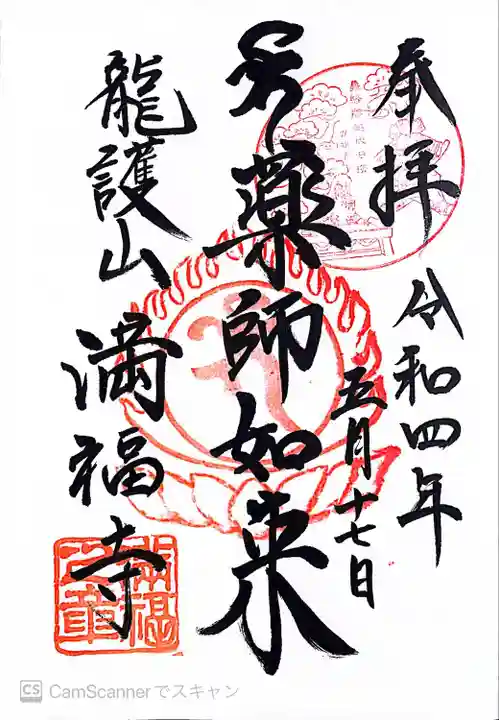 奉拝
令和四年
五月十七日
薬師如来
龍護山
満福寺
CS CamScannerでスキャン